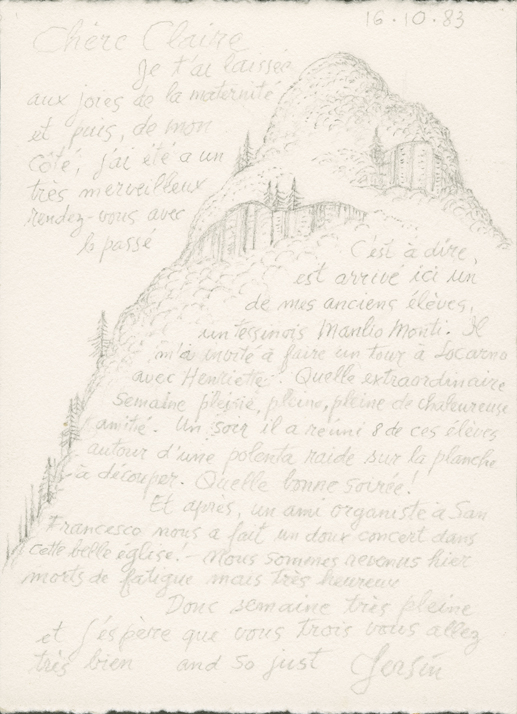 16.10.83
Chère Claire
Je t'ai laissée
aux joies de la maternité
et puis, de mon
côté, j'ai été a un
très merveilleux
rendez-vous avec
le passé
C'est à dire,
est arrivé ici un
de mes anciens élèves,
un tessinois Manlio Monti. Il
m'a invité à faire un tour à Locarno
avec Henriette. Quelle extraordinaire
semaine pleine, pleine de chaleureuse
amitié. Un soir il a réuni 8 de ces élèves
autour d'une polenta raide sur la planche
à découper. Quelle bonne soirée!
Et après, un ami organiste à San
Francesco nous a fait un doux concert dans
cette belle église! - Nous sommes revenus hier
morts de fatigue mais très heureux
Donc semaine très pleine
et j'espère que vous trois vous allez
très bien and so just